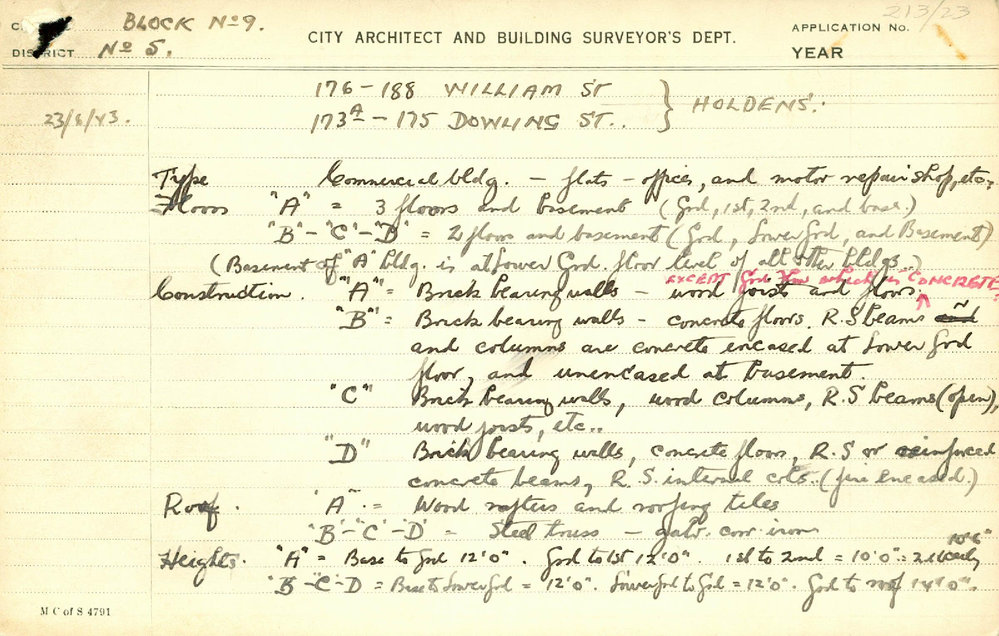 BLOCK No 9.
DISTRICT No 5.
CITY ARCHITECT AND BUILDING SURVEYOR'S DEPT.
213/23
APPLICATION No.
YEAR
23/6/43.
176-188 WILLIAM ST
173A - 175 DOWLING ST.. } HOLDENS.
Type Commercial bldg. - flats - offices, and motor repair shop, etc.
Floors "A" = 3 floors and basement (Grd, 1st, 2nd, and base.)
"B"-"C"-"D" = 2 floors and basement (Grd., Lower Grd, and Basement)
(Basement of "A" bldg. is at Lower Grd. floor level of all other bldgs.)
EXCEPT Grd floor which is CONCRETE
Construction. "A" = Brick bearing walls - wood joists and floors.
"B" = Brick bearing walls - concrete floors. R.S beams
and columns are concrete encased at Lower Grd
floor, and unencased at basement
"C" Brick bearing walls, wood columns, R.S beams (open),
wood joists, etc..
"D" Brick bearing walls, concrete floors, R.S or reinforced
concrete beams, R.S. internal cols. (fire encased.)
Roof. "A" = Wood rafters and roofing tiles
"B"-"C"-"D" = Steel truss - galv. corr. iron
10'6"
Heights. "A" = Base to Grd 12'0". Grd to 1st 12'0". 1st to 2nd = 10'0" =
"B-C-D = Base to Lower Grd = 12'0". Lower Grd to Grd = 12'0". Grd to roof 14'0".
M C of S 4791